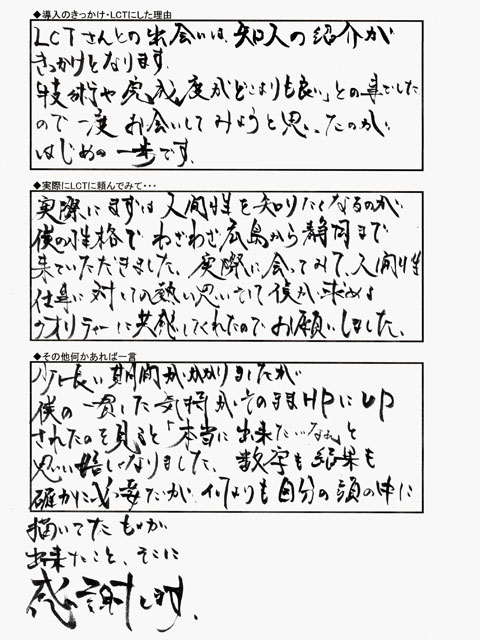 ◆導入のきっかけ・LCTにした理由
LCTさんとの出会いは、知人の紹介が
きっかけとなります。
「技術や完成度がどこよりも良い」との事でした
ので一度お会いしてみようと思ったのが
はじめの一歩です。
◆実際にLCTに頼んでみて・・・
実際にまずは人間性を知りたくなるのが
僕の性格でわざわざ広島から静岡まで
来ていただきました。実際に会ってみて、人間性
仕事に対しての熱い思いそして僕が求める
クオリティーに共感してくれたのでお願いしました。
◆その他何かあれば一言
少し長い期間がかかりましたが
僕の一貫した気持がそのままHPにUP
されたのを見ると「本当に出来たいなぁ」と
思い嬉しくなりました。数字も結果も
確かに必要だが何よりも自分の頭の中に
描いてたものが
出来たこと、そこに
感謝します。